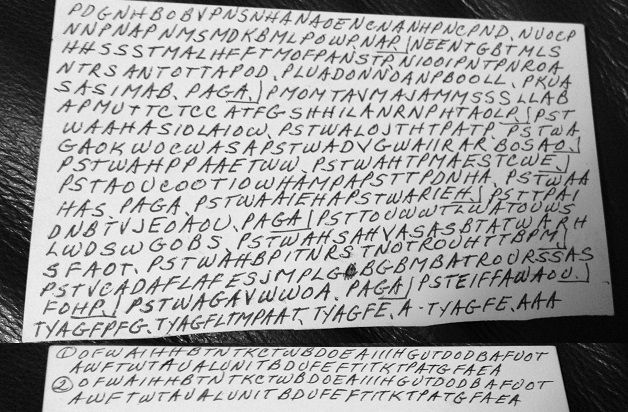 PDGNHBOBVPNSNHANAOENCNANHPNCPND. NUOCP
NNPNAPNMSMDKBMLPOWP.NAP/NEENTGBTMLS
HHSSSTMALHFFTMOFPANSTP. NIOOIPNTPNROA
NTRSANTOTTAPOD. PLUADONNOANPBOOLL. PKUA
SASIMAB. PAGA./PMOMTAVMAJAMMSSSLLAB
APMUTTCTCC ATFGSHHILANRNPHTAOLP/PST
WAAHASIOLAIOW. PSTWALOJTHTPATP. PSTWA
GAOKWOCWASAPSTWADVGWAIIRAR BOSAO./
PSTWAHPPAAETWW. PSTWAHTPMAESTCWE./
PSTAOUCOOTIOWHAMPAPSTTPDNHA. PSTWAA
HAS. PAGA. PSTWAAIEHAPSTWARIEH./PSTTPAI
DNBTVJEOAOU. PAGA/PSTTOUWWTLWATOUWS
LWDSWGOBS. PSTWAHSAHVASASBTATWARH
SFAOT. PSTWAHBPITNRSTNOTROUHTTBPM/
PSTVCADAFLAFESJMPLG BGBMBATROURSSAS
FOHP./PSTWAGAVWWOA. PAGA/PSTEIFFAWAOU./
TYAGFPFG. TYAGFLTMPAAT. TYAGFE. A-TYAGFE. AAA
① OFWAIHHBTNTKCTWBDOEAIIIHGUTDODBAFUOT
AWFTWTAUALUNITBDUFEFTITKTPATGFAEA
② OFWAIHHBTNTKCTWBDOEAIIIHGUTDODBAFUOT
AWFTWTAUALUNITBDUFEFTITKTPATGFAEA